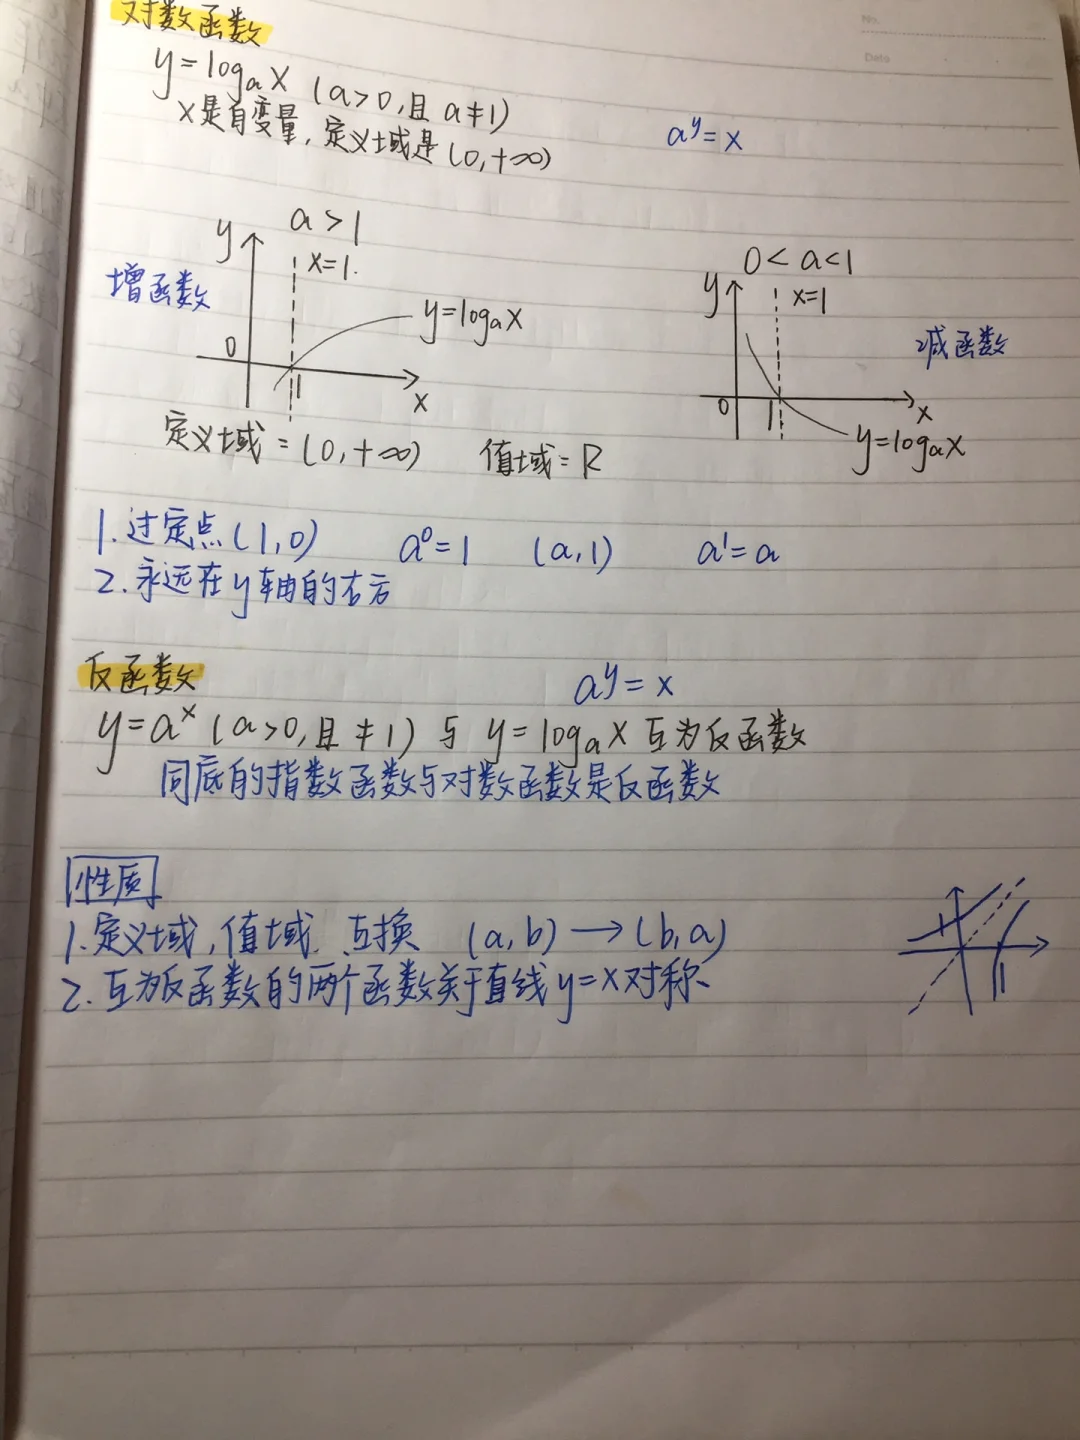 No.
Date
对数函数
y=logₐx (a>0,且a≠1)
x是自变量,定义域是(0,+∞)
aʸ=x
a>1
y
x=1.
增函数
y=logₐx
0
1
x
0<a<1
y
x=1
减函数
0
1
x
y=logₐx
定义域=(0,+∞) 值域=R
1.过定点(1,0) a⁰=1 (a,1) a¹=a
2.永远在y轴的右方
反函数
aʸ=x
y=aˣ (a>0,且≠1) 与 y=logₐx 互为反函数
同底的指数函数与对数函数是反函数
性质
1.定义域,值域 互换 (a,b)→(b,a)
2.互为反函数的两个函数关于直线y=x对称、
1
1